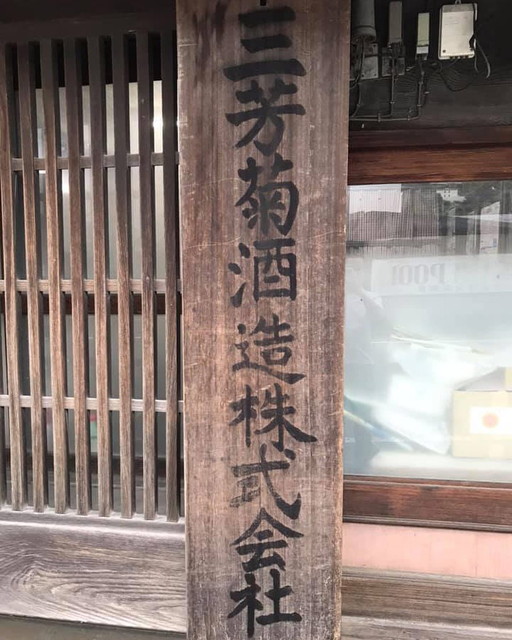 三芳菊酒造株式会社